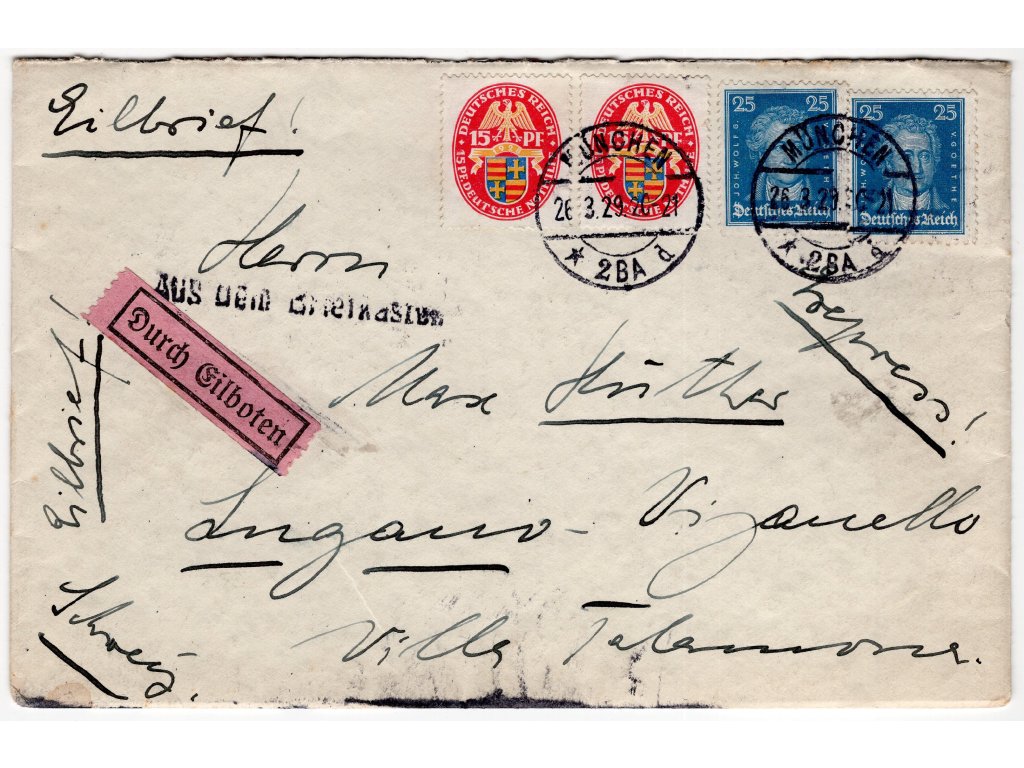 Eilbrief!
DEUTSCHES REICH
15 PF
1928
15 PF. DEUTSCHE NOTHILFE
DEUTSCHES REICH
PF
25 25
JOH. WOLFG. V. GOETHE
Deutsches Reich
25 25
JOH. WOLFG. V. GOETHE
Deutsches Reich
MÜNCHEN
26.3.29. 20-21
* 2BA d
MÜNCHEN
26.3.29. 20-21
* 2BA d
Herrn
Aus dem Briefkasten
Durch Eilboten
Express!
Max Hüther
Eilbrief!
Lugano - Viganello
Schweiz.
Villa Talamona.